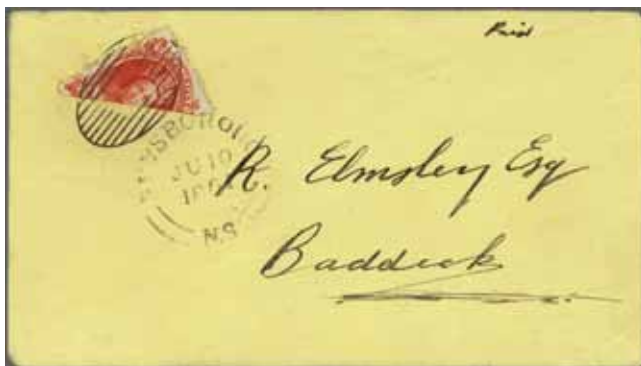 Paid
JU 10
N.S
R. Elmsley Esq
Baddeck